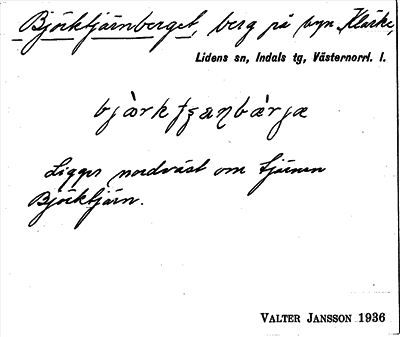 Björktjärnberget, berg på byn Klärke,
Lidens sn, Indals tg, Västernorrl. l.
bjàrkțșaɳbæ̀rjə
Ligger nordväst om tjärnen
Björktjärn.
VALTER JANSSON 1936